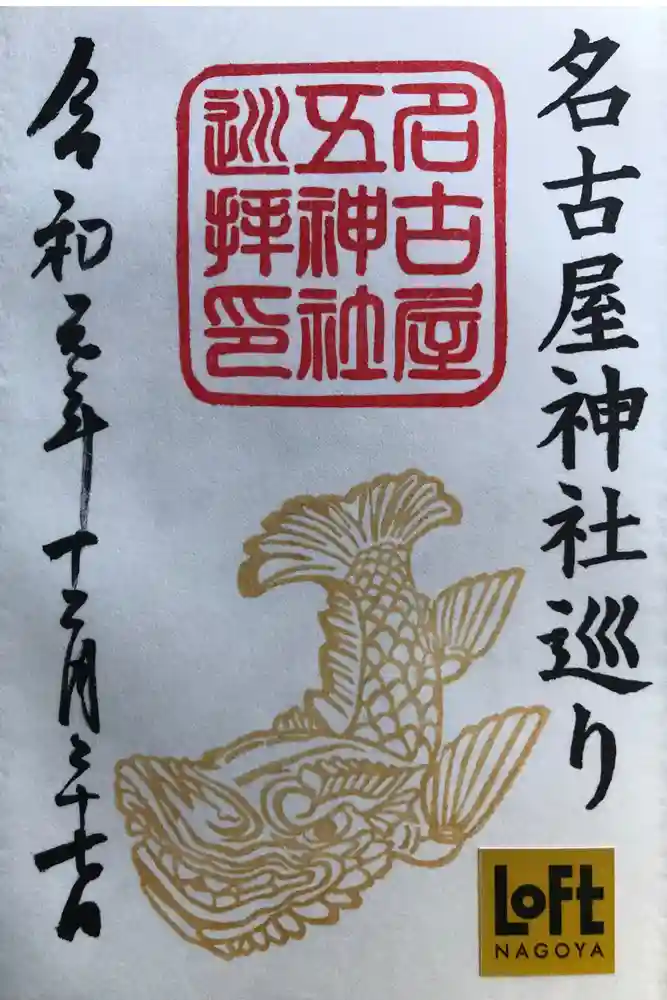 名古屋神社巡り
名古屋
五神社
巡拝印
令和元年十二月二十七日
LOFT
NAGOYA